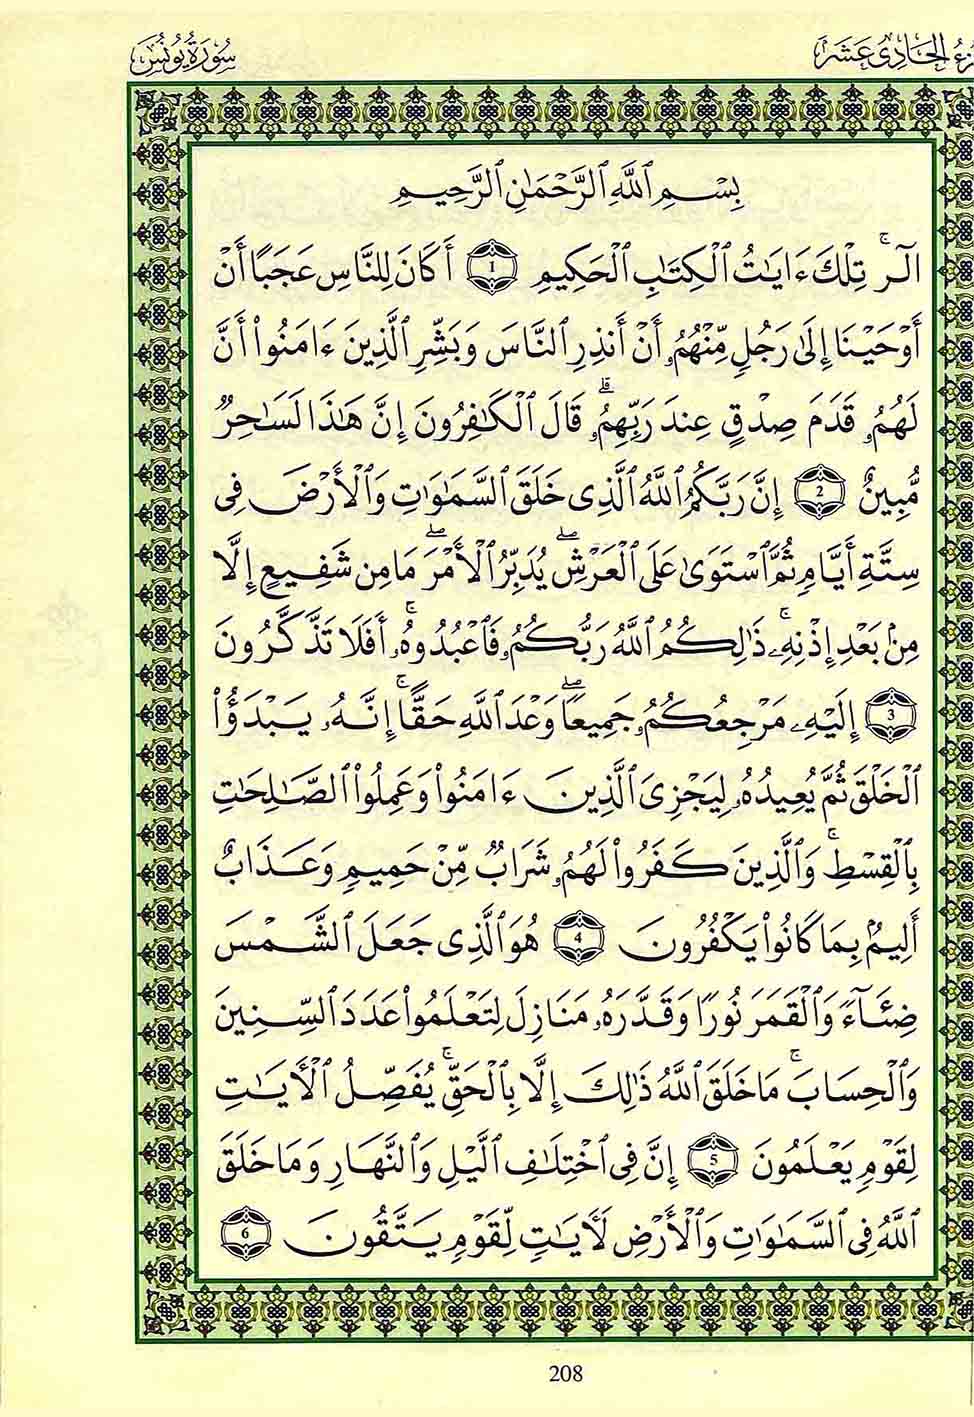 زء الحَادِى عَشَرَ
سُورَةُ يُونُسَ
بِسْمِ ٱللَّهِ ٱلرَّحْمَٰنِ ٱلرَّحِيمِ
الٓرۚ تِلْكَ ءَايَٰتُ ٱلْكِتَٰبِ ٱلْحَكِيمِ 1 أَكَانَ لِلنَّاسِ عَجَبًا أَنْ
أَوْحَيْنَا إِلَىٰ رَجُلٍ مِّنْهُمُۥ أَنْ أَنذِرِ ٱلنَّاسَ وَبَشِّرِ ٱلَّذِينَ ءَامَنُوا۟ أَنَّ
لَهُمُۥ قَدَمَ صِدْقٍ عِندَ رَبِّهِمُۥۗ قَالَ ٱلْكَٰفِرُونَ إِنَّ هَٰذَا لَسَٰحِرٌ
مُّبِينٌ 2 إِنَّ رَبَّكُمُ ٱللَّهُ ٱلَّذِى خَلَقَ ٱلسَّمَٰوَٰتِ وَٱلْأَرْضَ فِى
سِتَّةِ أَيَّامٍ ثُمَّ ٱسْتَوَىٰ عَلَى ٱلْعَرْشِۖ يُدَبِّرُ ٱلْأَمْرَۖ مَا مِن شَفِيعٍ إِلَّا
مِنۢ بَعْدِ إِذْنِهِۦۚ ذَٰلِكُمُ ٱللَّهُ رَبُّكُمُۥ فَٱعْبُدُوهُۥۚ أَفَلَا تَذَّكَّرُونَ
3 إِلَيْهِۦ مَرْجِعُكُمُۥ جَمِيعًاۖ وَعْدَ ٱللَّهِ حَقًّاۚ إِنَّهُۥ يَبْدَؤُا۟
ٱلْخَلْقَ ثُمَّ يُعِيدُهُۥ لِيَجْزِىَ ٱلَّذِينَ ءَامَنُوا۟ وَعَمِلُوا۟ ٱلصَّٰلِحَٰتِ
بِٱلْقِسْطِۚ وَٱلَّذِينَ كَفَرُوا۟ لَهُمُۥ شَرَابٌ مِّنْ حَمِيمٍ وَعَذَابٌ
أَلِيمٌۢ بِمَا كَانُوا۟ يَكْفُرُونَ 4 هُوَ ٱلَّذِى جَعَلَ ٱلشَّمْسَ
ضِئَآءً وَٱلْقَمَرَ نُورًا وَقَدَّرَهُۥ مَنَازِلَ لِتَعْلَمُوا۟ عَدَدَ ٱلسِّنِينَ
وَٱلْحِسَابَۚ مَا خَلَقَ ٱللَّهُ ذَٰلِكَ إِلَّا بِٱلْحَقِّۚ يُفَصِّلُ ٱلْأَيَٰتِ
لِقَوْمٍ يَعْلَمُونَ 5 إِنَّ فِى ٱخْتِلَٰفِ ٱلَّيْلِ وَٱلنَّهَارِ وَمَا خَلَقَ
ٱللَّهُ فِى ٱلسَّمَٰوَٰتِ وَٱلْأَرْضِ لَأَيَٰتٍ لِّقَوْمٍ يَتَّقُونَ 6
208